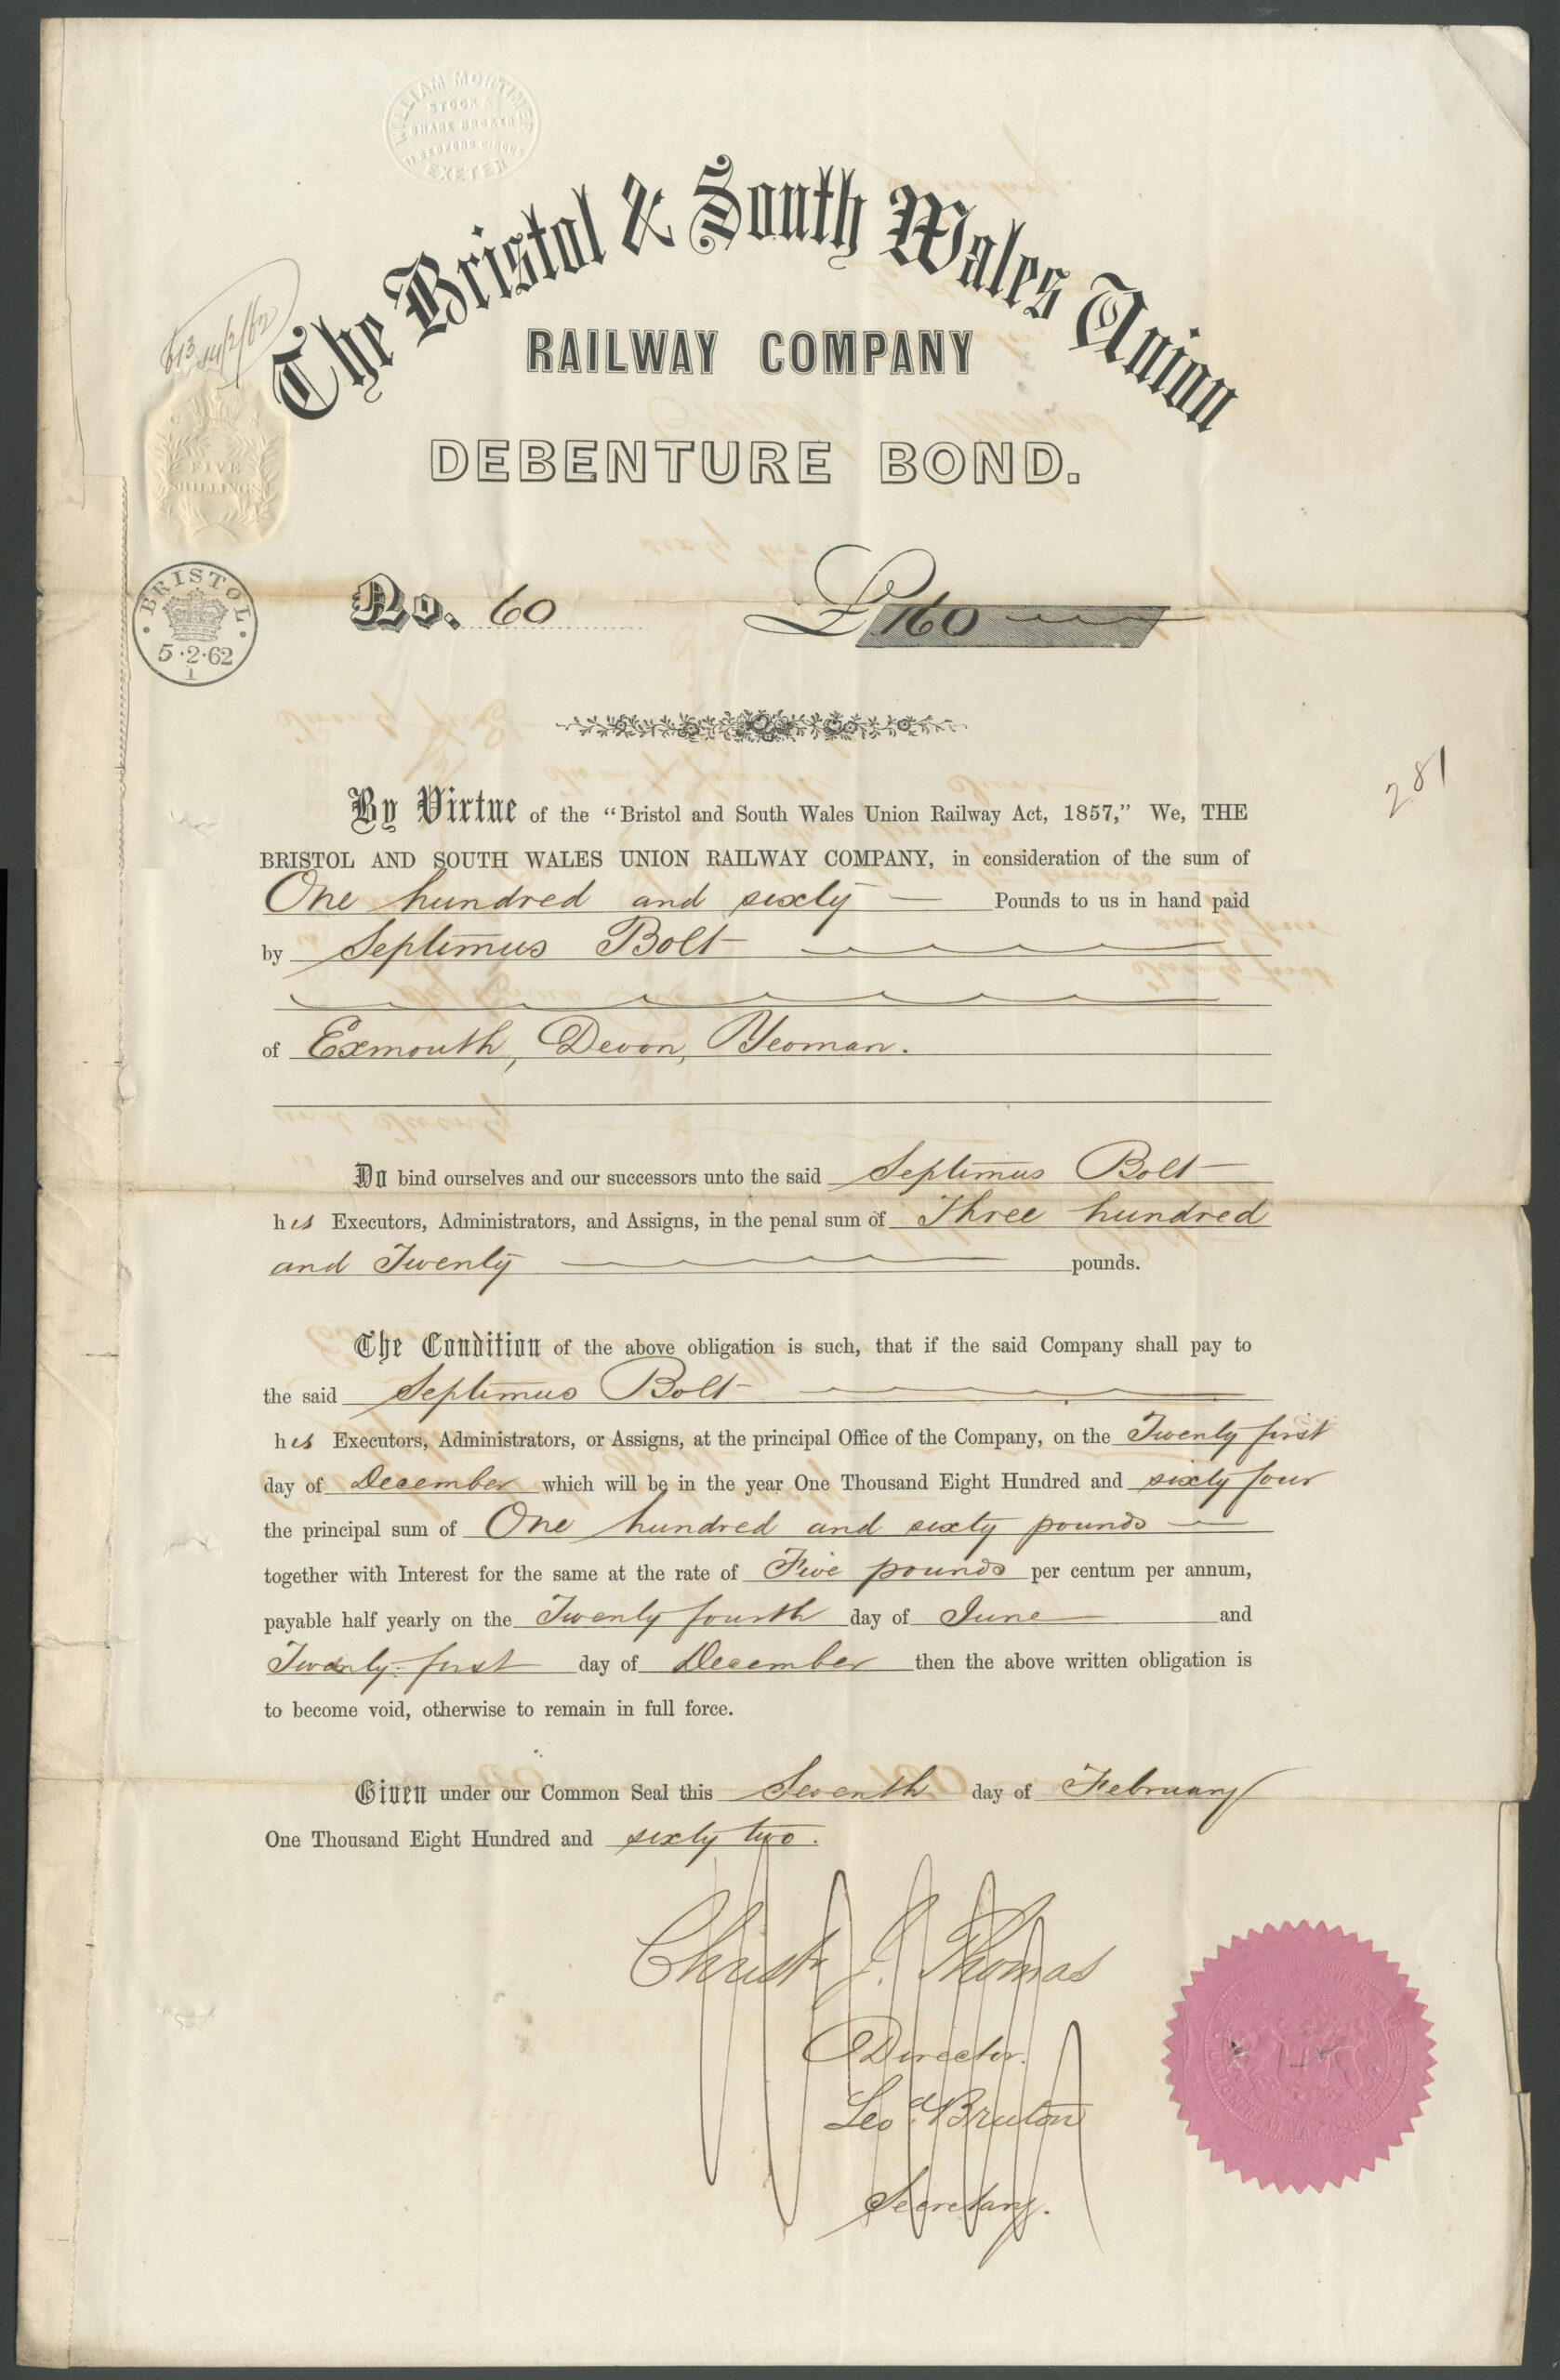 WILLIAM MORTIMER
STOCK &
SHARE BROKER
11 BEDFORD CIRCUS
EXETER
The Bristol & South Wales Union
RAILWAY COMPANY
DEBENTURE BOND.
613 14/2/62
FIVE
SHILLINGS
BRISTOL
5·2·62
1
No. 60
£160
281
By Virtue of the "Bristol and South Wales Union Railway Act, 1857," We, THE
BRISTOL AND SOUTH WALES UNION RAILWAY COMPANY, in consideration of the sum of
One hundred and sixty Pounds to us in hand paid
by Septimus Bolt
of Exmouth, Devon, Yeoman.
Do bind ourselves and our successors unto the said Septimus Bolt
his Executors, Administrators, and Assigns, in the penal sum of Three hundred
and Twenty pounds.
The Condition of the above obligation is such, that if the said Company shall pay to
the said Septimus Bolt
his Executors, Administrators, or Assigns, at the principal Office of the Company, on the Twenty first
day of December which will be in the year One Thousand Eight Hundred and sixty four
the principal sum of One hundred and sixty pounds
together with Interest for the same at the rate of Five pounds per centum per annum,
payable half yearly on the Twenty fourth day of June and
Twenty-first day of December then the above written obligation is
to become void, otherwise to remain in full force.
Given under our Common Seal this Seventh day of February
One Thousand Eight Hundred and sixty two.
Christr J. Thomas
Director.
Leod. Bruton
Secretary.